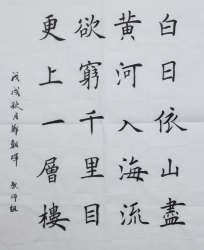 白日依山盡
黃河入海流
欲窮千里目
更上一層樓
戊戌秋月鄭朝暉